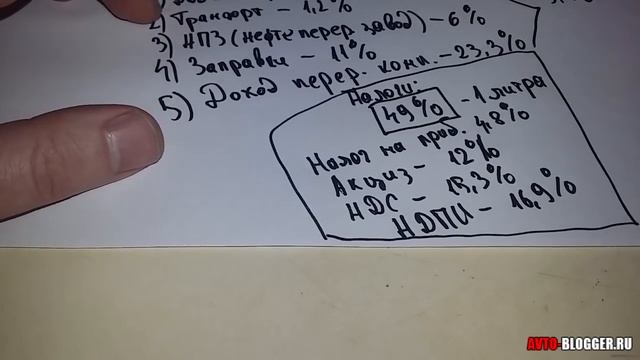 2) Транспорт - 1,2%
3) НПЗ (нефте перер завод) - 6%
4) Заправки - 11%
5) Доход перер. комп. - 23,3%
Налоги:
49% - 1 литра
Налог на проб. 4,8%
Акциз - 12%
НДС - 15,3%
НДПИ - 16,9%
AVTO-BLOGGER.RU